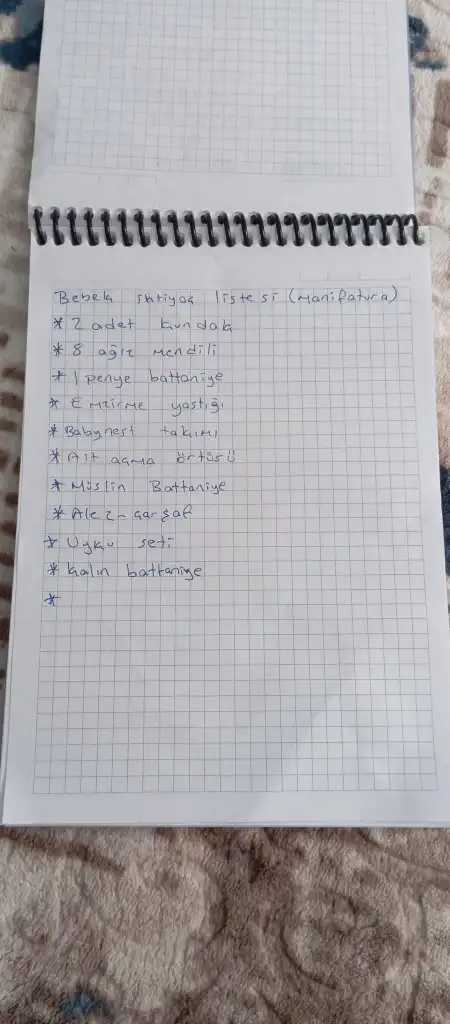 Bebek ihtiyaç listesi (Manifatura)
* 2 adet kundak
* 8 ağız mendili
* 1 penye battaniye
* Emzirme yastığı
* Babynest takımı
* Alt açma örtüsü
* Müslin Battaniye
* Alez-çarşaf
* Uyku seti
* kalın battaniye
*